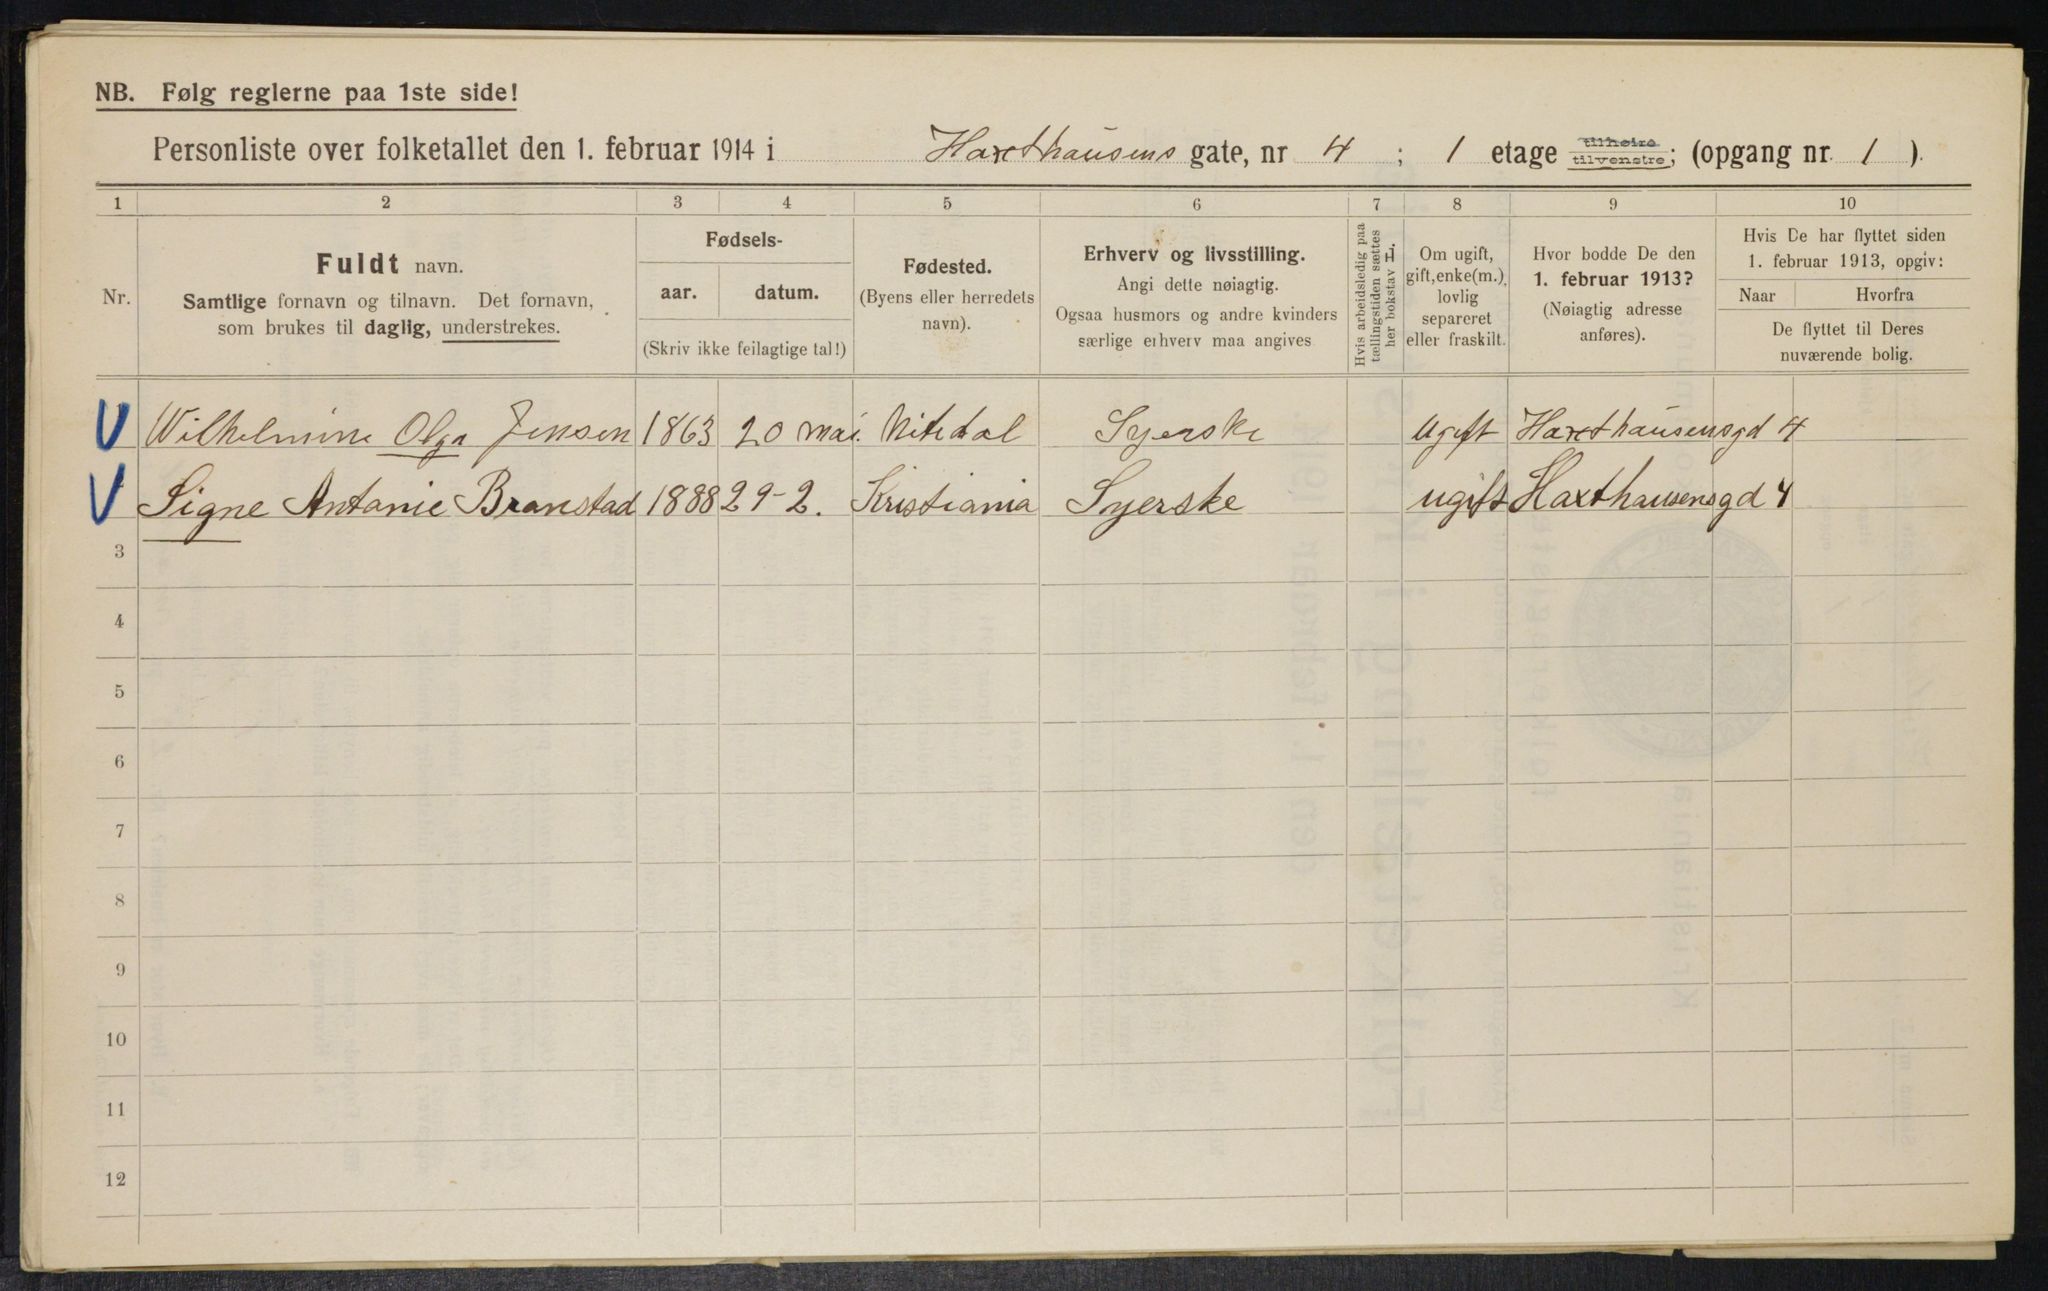 NB. Følg reglerne paa 1ste side!
Personliste over folketallet den 1. februar 1914 i Haxthausens gate, nr 4 ; 1 etage tilhøire tilvenstre; (opgang nr. 1 ).
1 2 3 4 5 6 7 8 9 10
Nr.
Fuldt navn.
Samtlige fornavn og tilnavn. Det fornavn,
som brukes til daglig, understrekes.
Fødsels-
aar. datum.
(Skriv ikke feilagtige tal!)
Fødested.
(Byens eller herredets
navn).
Erhverv og livsstilling.
Angi dette nøiagtig.
Ogsaa husmors og andre kvinders
særlige erhverv maa angives
Hvis arbeidsledig paa
tællingstiden sættes
her bokstav L.
Om ugift,
gift, enke(m.),
lovlig
separeret
eller fraskilt.
Hvor bodde De den
1. februar 1913?
(Nøiagtig adresse
anføres).
Hvis De har flyttet siden
1. februar 1913, opgiv:
Naar Hvorfra
De flyttet til Deres
nuværende bolig.
Wilhelmine Olga Jensen 1863 20 mai. Nitedal Syerske Ugift Haxthausensgd 4
Signe Antonie Branstad 1888 29-2. Kristiania Syerske ugift Haxthausensgd 4
3
4
5
6
7
8
9
10
11
12